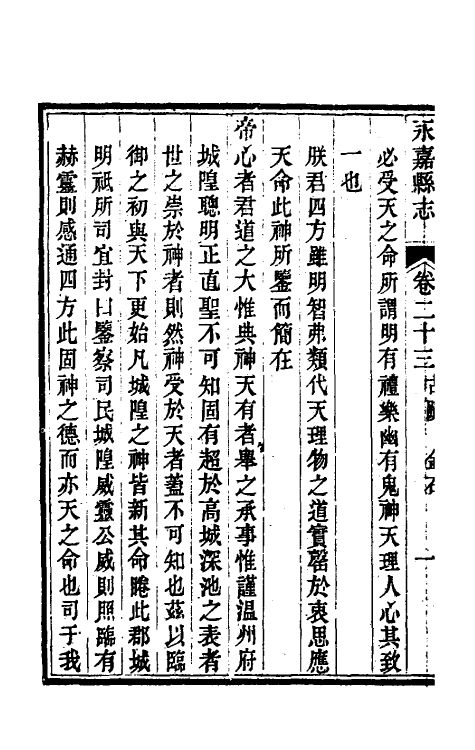 永嘉縣志 卷二十三 古蹟 金石 一
必受天之命所謂明有禮樂幽有鬼神天理人心其致
一也
朕君四方雖明智弗類代天理物之道實罄於衷思應
天命此神所鑒而簡在
帝心者君道之大惟典神天有者舉之承事惟謹温州府
城隍聰明正直聖不可知固有超於高城深池之表者
世之崇於神者則然神受於天者蓋不可知也茲以臨
御之初與天下更始凡城隍之神皆新其命睠此郡城
明祗所司宜封曰鑒察司民城隍威靈公威則照臨有
赫靈則感通四方此固神之德而亦天之命也司于我